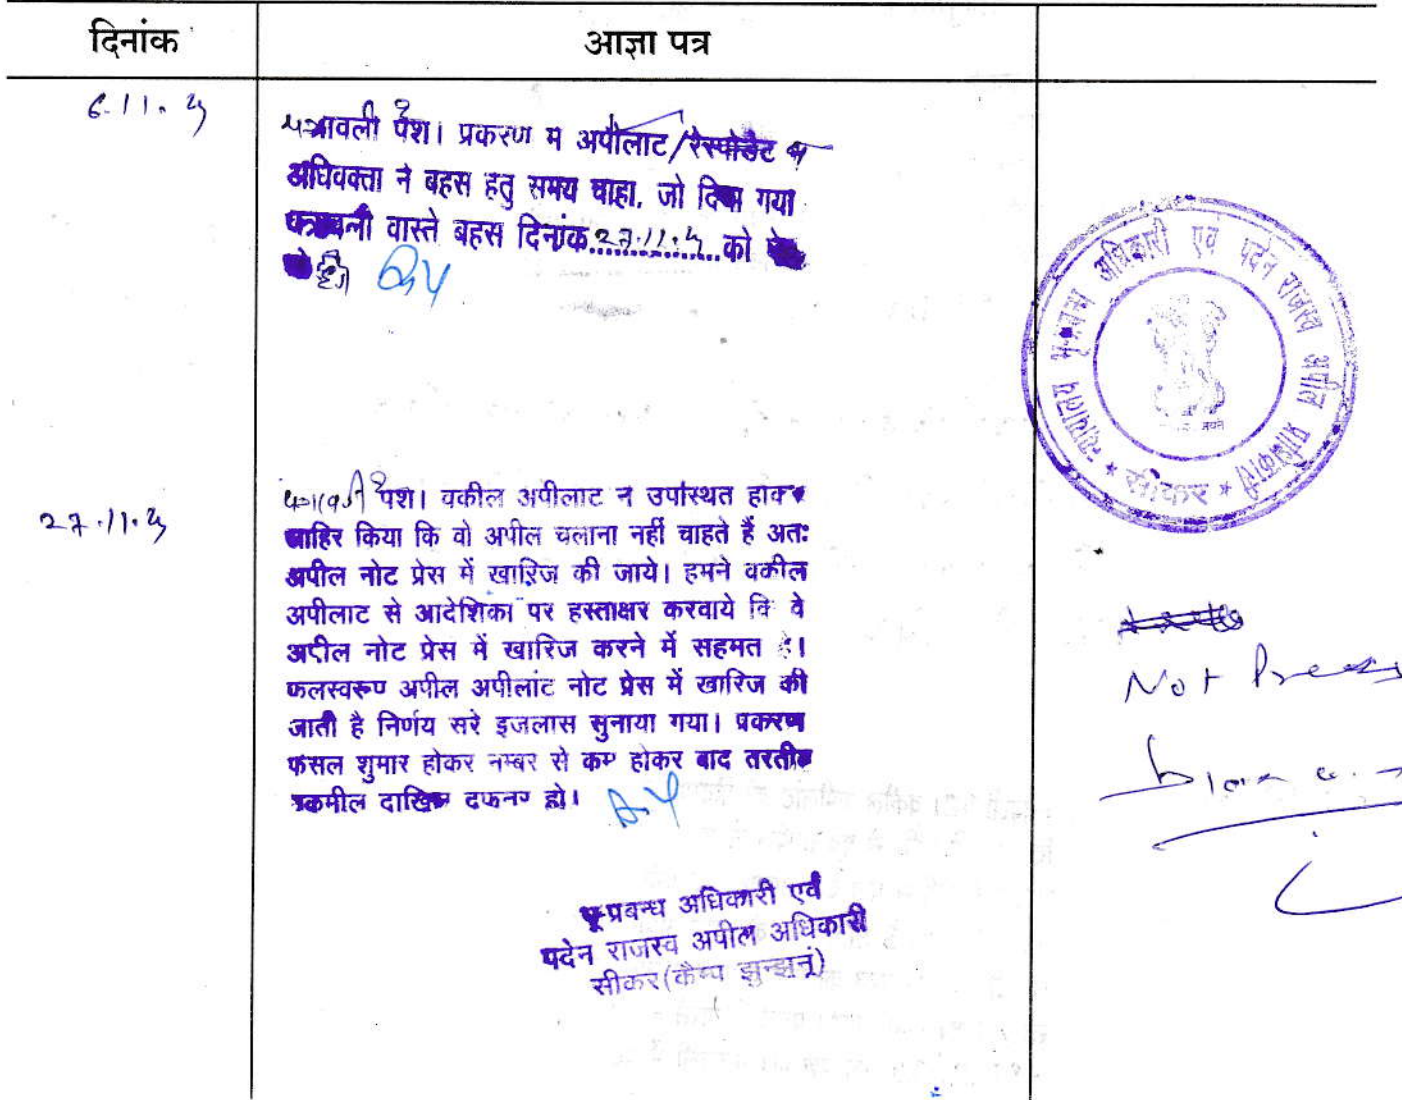 दिनांक
आज्ञा पत्र
6.11.
पत्रावली पेश। प्रकरण म अपीलाट/रेस्पोडेट
अधिवक्ता ने बहस हतु समय चाहा, जो दिया गया
पत्रावली वास्ते बहस दिनांक 27.11. को
न्यायालय भू-प्रबन्ध अधिकारी एवं पदेन राजस्व अपील प्राधिकारी
* सीकर *
27.11.
पत्रावली पेश। वकील अपीलाट न उपस्थित होकर
जाहिर किया कि वो अपील चलाना नहीं चाहते हैं अतः
अपील नोट प्रेस में खारिज की जाये। हमने वकील
अपीलाट से आदेशिका पर हस्ताक्षर करवाये कि वे
अपील नोट प्रेस में खारिज करने में सहमत है।
फलस्वरूप अपील अपीलांट नोट प्रेस में खारिज की
जाती है निर्णय सरे इजलास सुनाया गया। प्रकरण
फसल शुमार होकर नम्बर से कम होकर बाद तरतीब
तकमील दाखिल दफ्तर हो।
Not Press
भू-प्रबन्ध अधिकारी एवं
पदेन राजस्व अपील अधिकारी
सीकर(कैम्प झुन्झनूं)